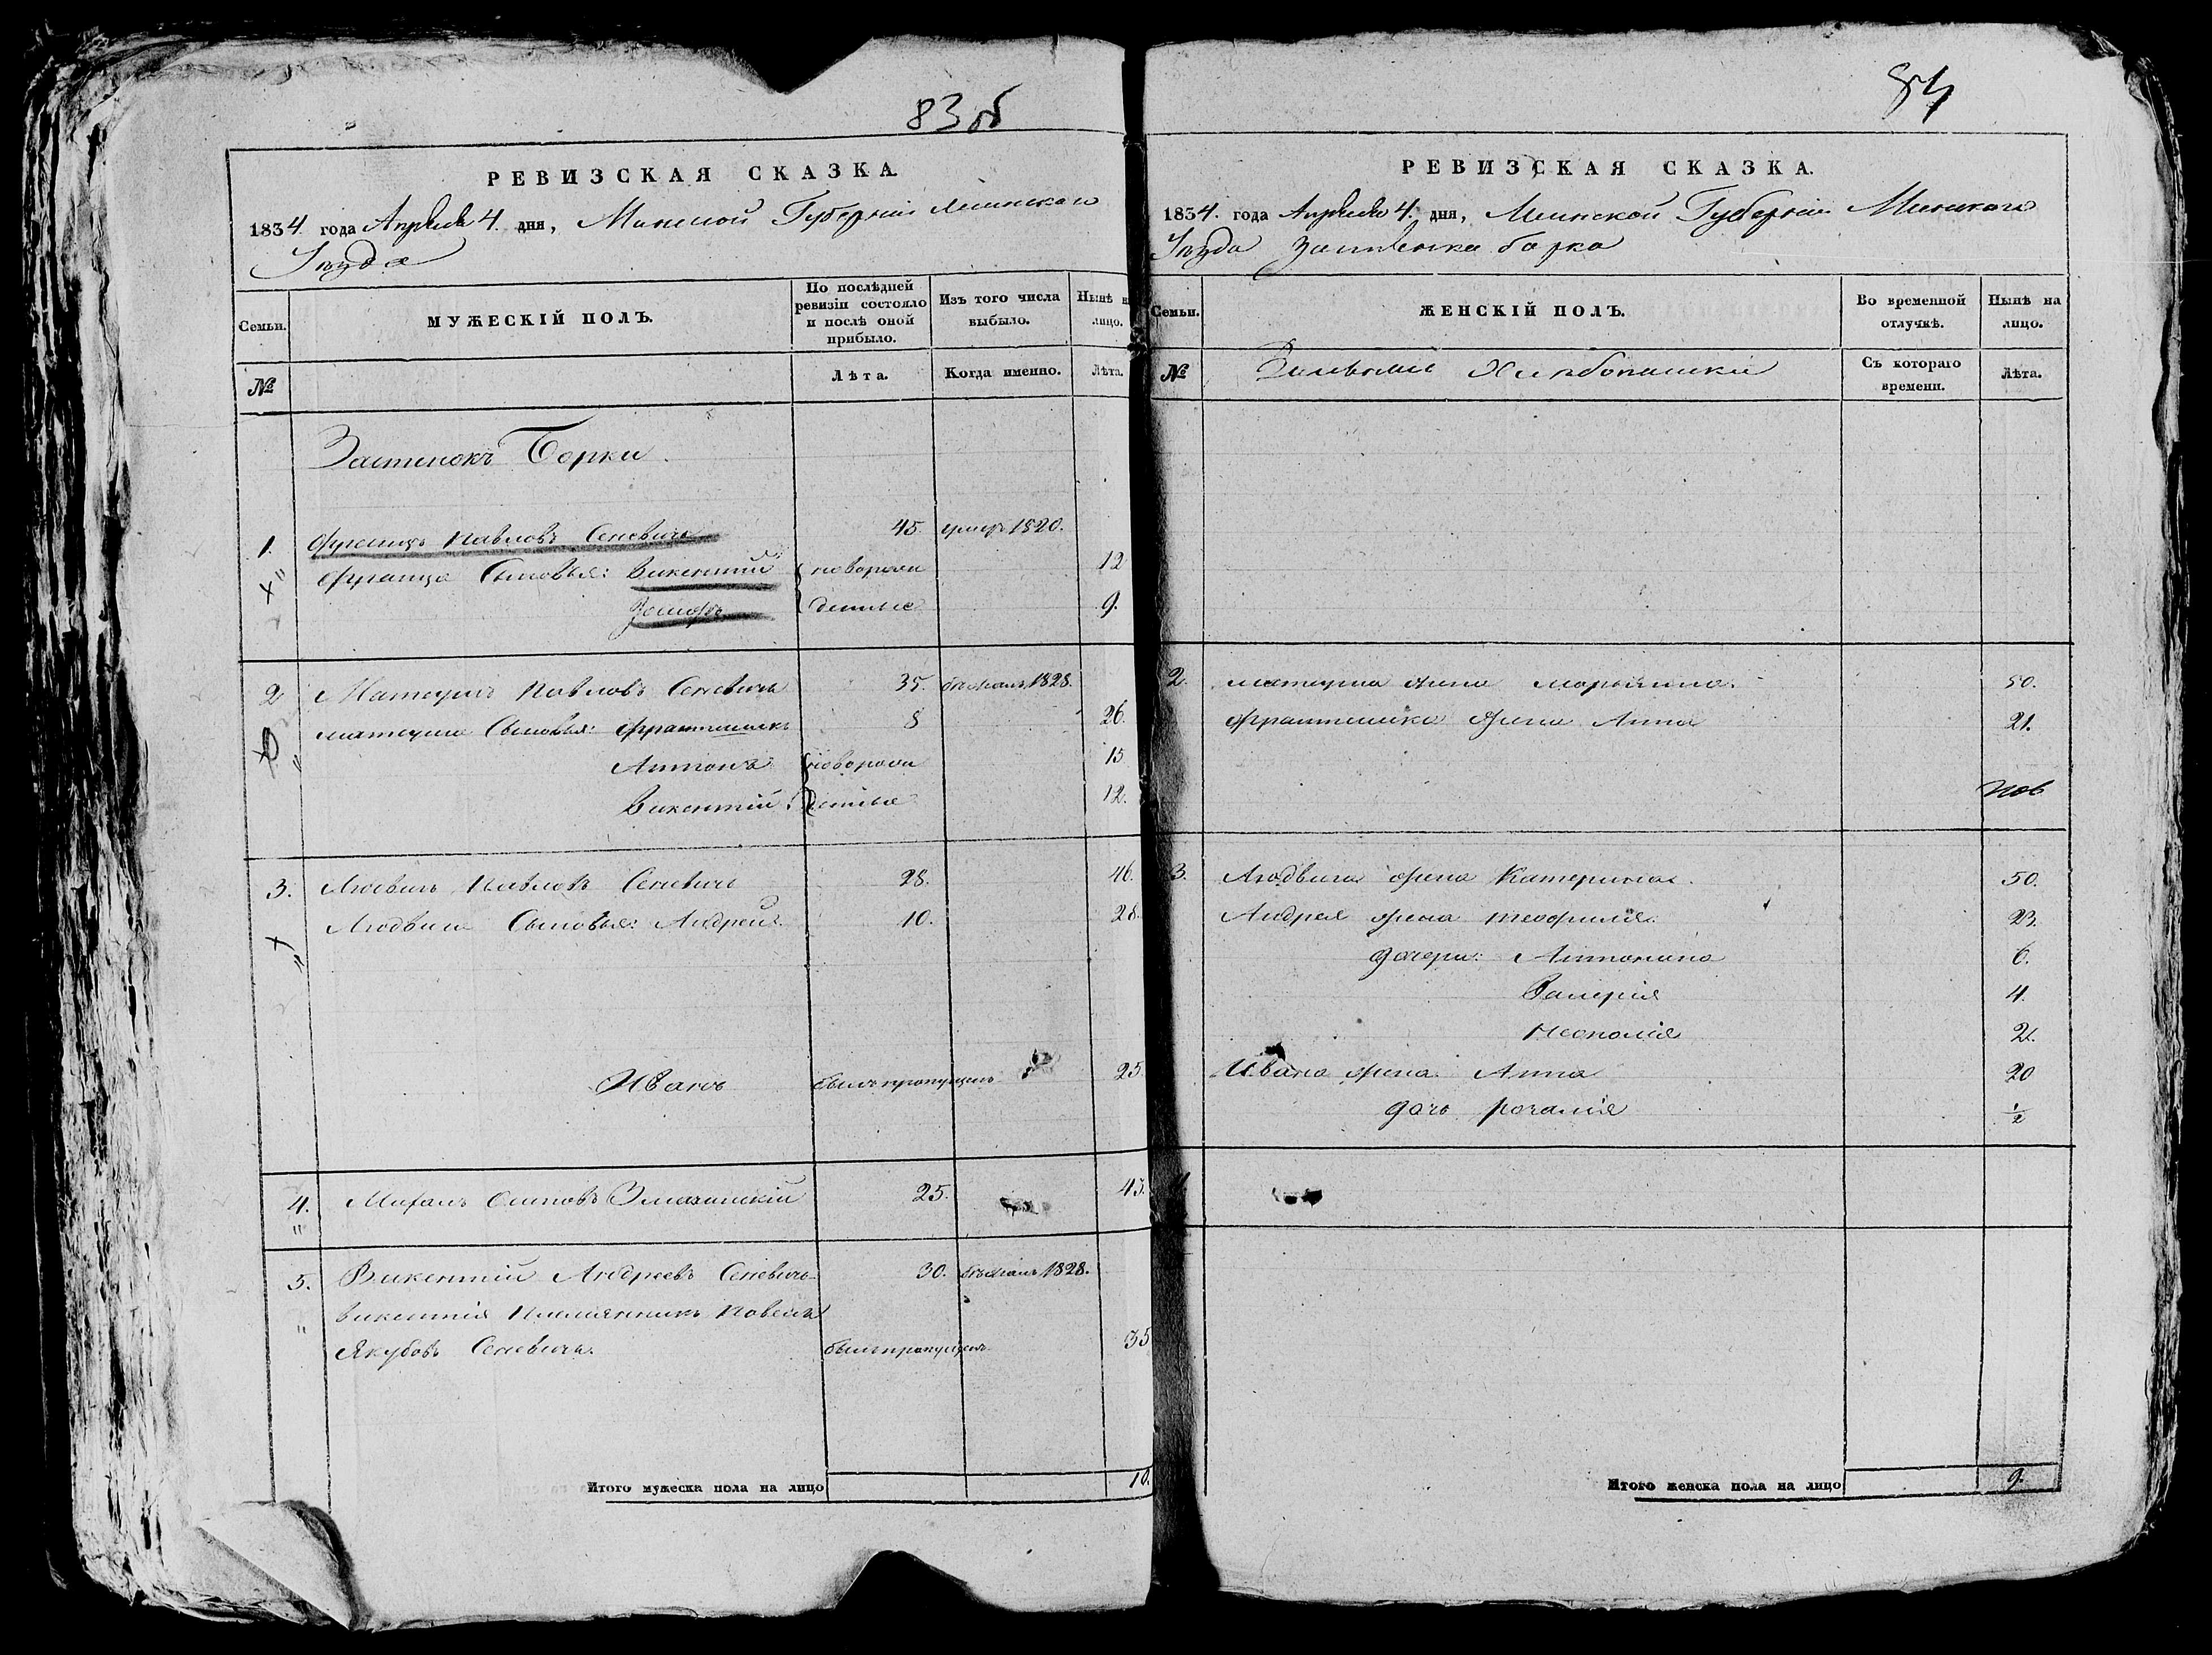 83 об
РЕВИЗСКАЯ СКАЗКА.
1834 года Апреля 4. дня, Минской Губерніи Минскаго
Уезда
Семьи.
МУЖЕСКІЙ ПОЛЪ.
По послѣдней ревизіи состояло и послѣ оной прибыло.
Изъ того числа выбыло.
Нынѣ на лицо.
№
Лѣта.
Когда именно.
Лѣта.
Застенокъ Борки.
1. Францъ Павловъ Сеневичъ 45. умеръ 1820.
Франца Сыновья: Викентій новорож 12
Іосифъ денные 9.
2 Матеушъ Павловъ Сеневичъ 35. 1828.
матеуша Сыновья: Францишекъ 8 26.
Антонъ новорож 15
Викентій денные 12.
3. Людвигъ Павловъ Сеневичъ 28. 46.
Людвига Сыновья: Андрей 10. 28.
Иванъ былъ пропущенъ 25
4. Михалъ Осиповъ 25. 43.
5. Викентій Андреевъ Сеневичъ 30. 1828.
Викентія Племянникъ Павелъ
Якубовъ Сеневичъ былъ пропущенъ 35
Итого мужеска пола на лицо 10.
84
РЕВИЗСКАЯ СКАЗКА.
1834. года Апреля 4. дня, Минской Губерніи Минскаго
Уезда застенка борка
Семьи.
ЖЕНСКІЙ ПОЛЪ.
Во временной отлучкѣ.
Нынѣ на лицо.
№
Съ котораго времени.
Лѣта.
2. матеуша жена Марьянна. 50.
Францишка жена Анна 21.
нов
3. Людвига жена Катерина. 50.
Андрея жена теофилія. 23.
дочери: Антонина 6.
Валерія 4.
2.
Ивана жена Анна 20
дочь розалія 1/2
Итого женска пола на лицо 9.